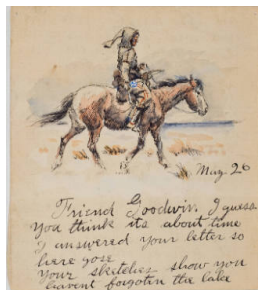 May 26
Friend Goodwin I guess
you think its about time
I answered your letter so
here gose
Your sketches show you
havent forgotten the lake